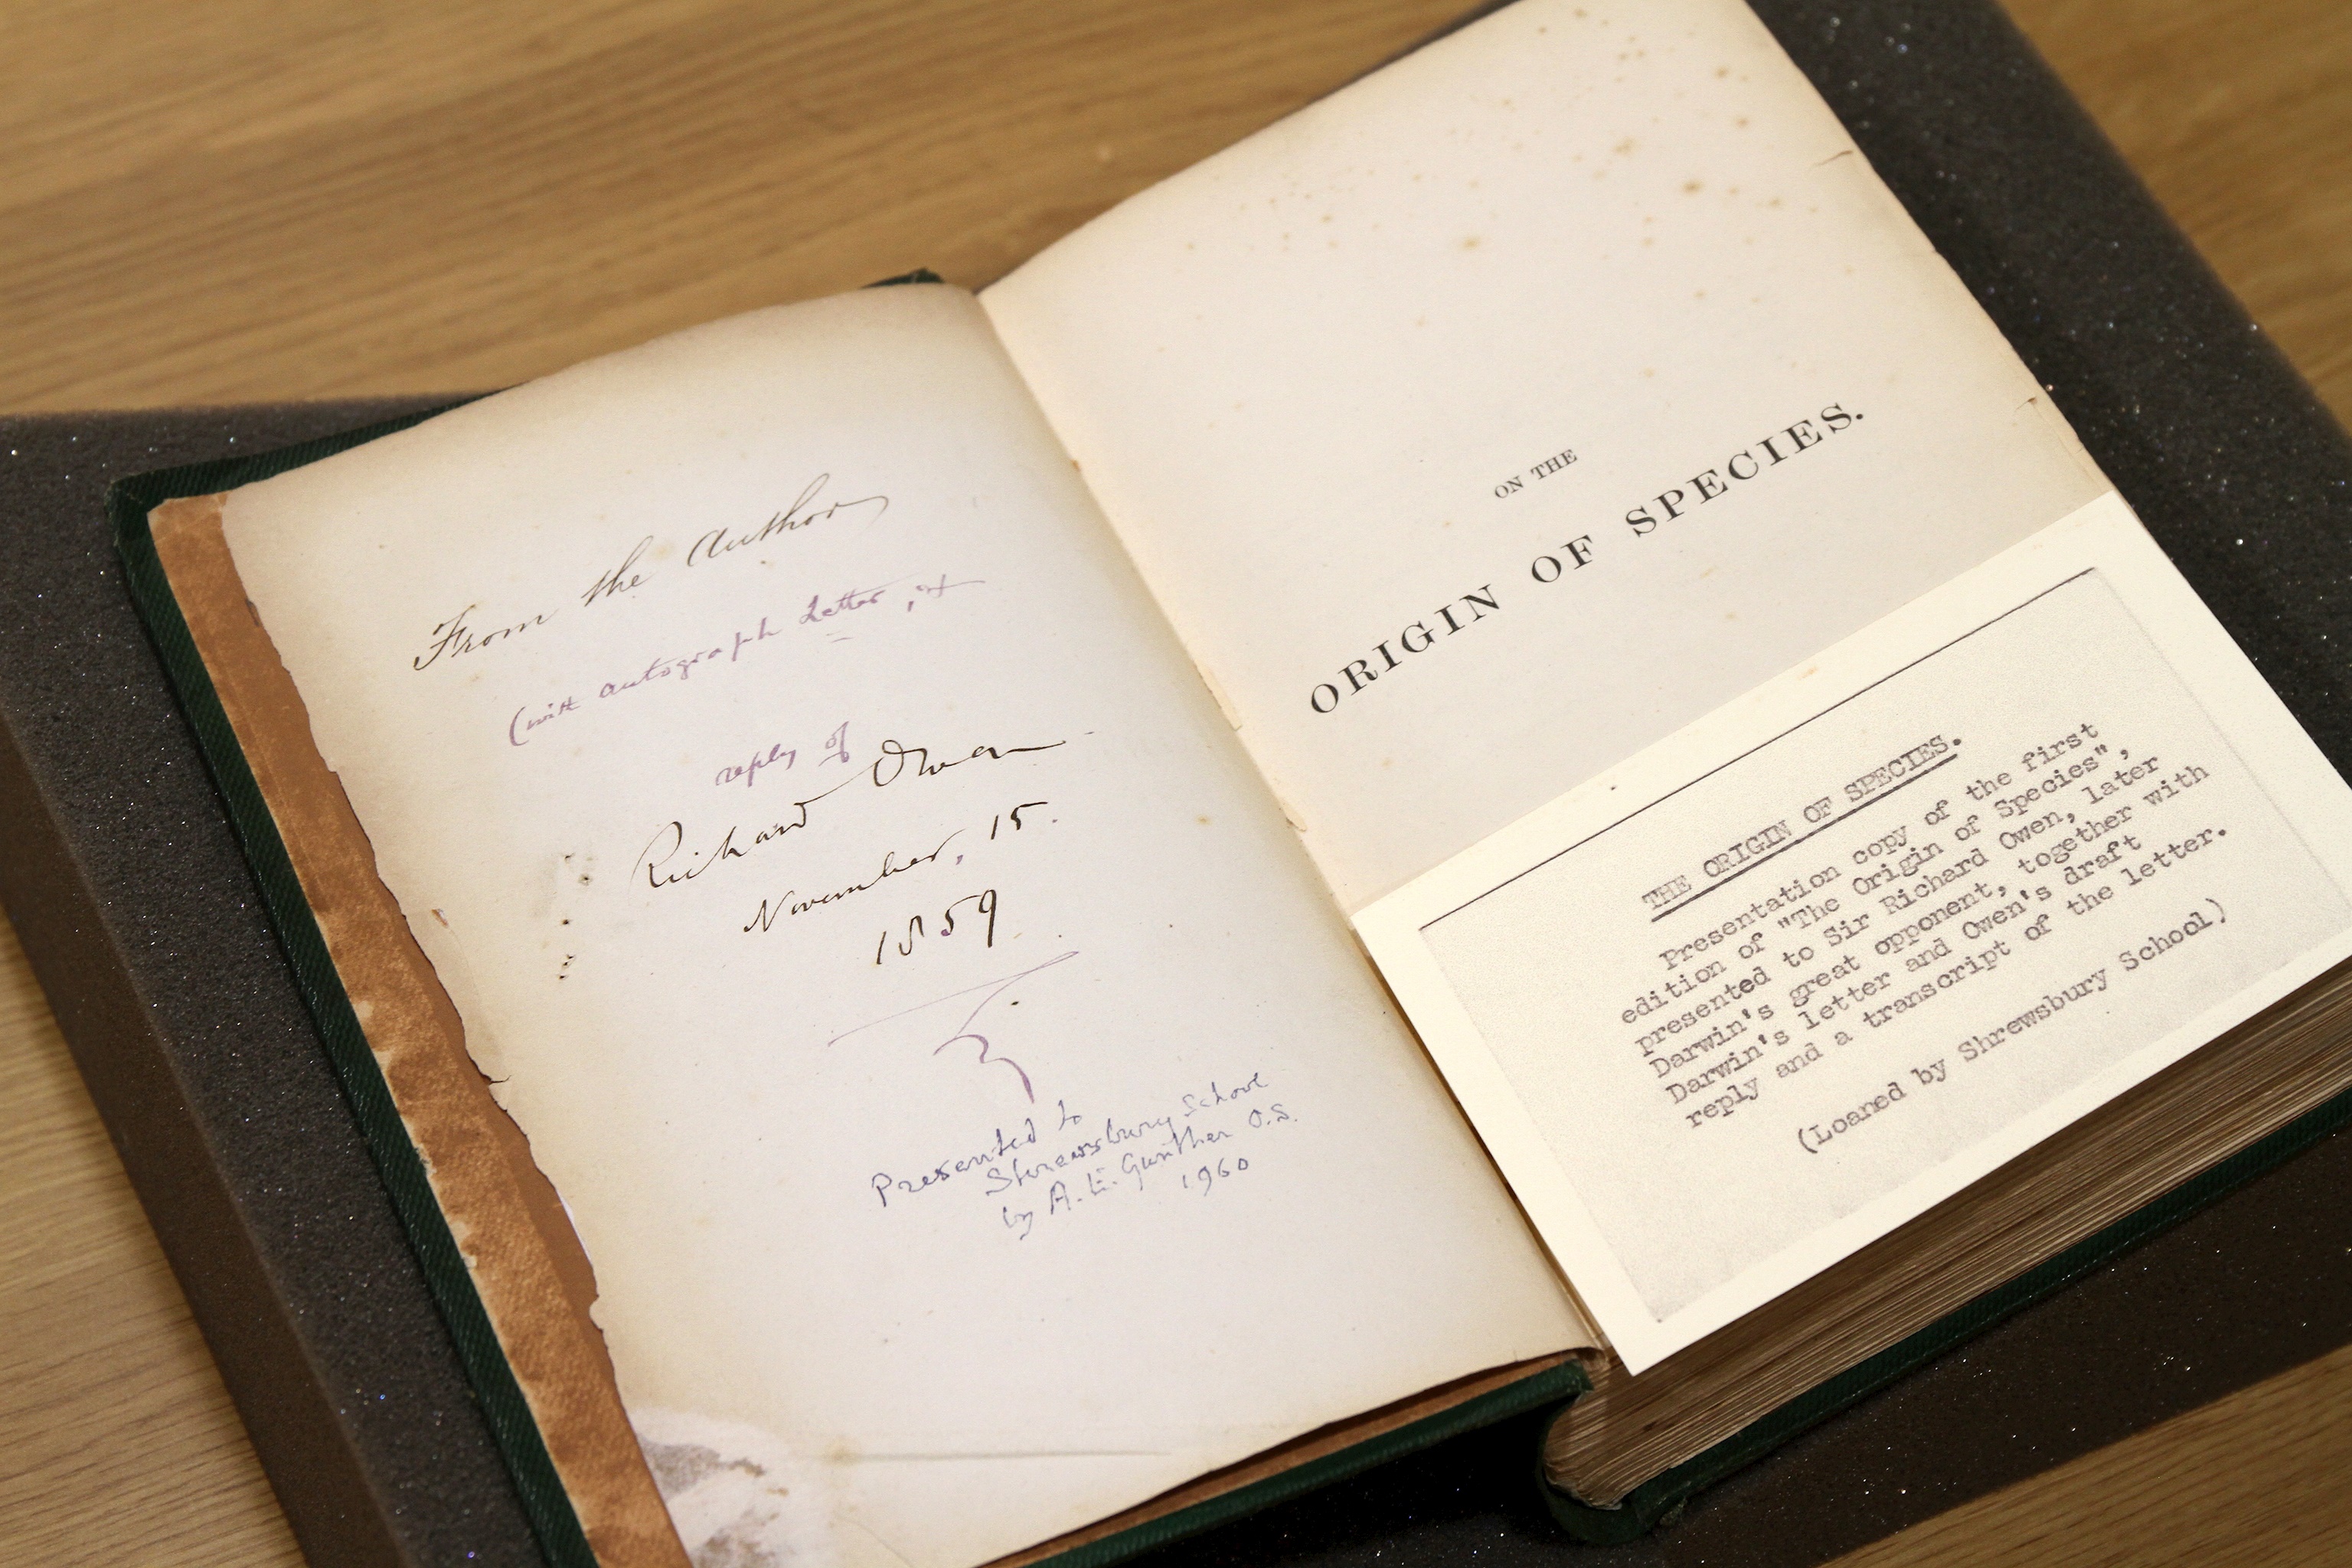 From the Author
(with autograph Letter, &
reply of
Richard Owen
November, 15.
1859
Presented to
Shrewsbury School
by A. E. Gunther O.S.
1960
ON THE
ORIGIN OF SPECIES.
THE ORIGIN OF SPECIES.
Presentation copy of the first
edition of "The Origin of Species",
presented to Sir Richard Owen, later
Darwin's great opponent, together with
Darwin's letter and Owen's draft
reply and a transcript of the letter.
(Loaned by Shrewsbury School)